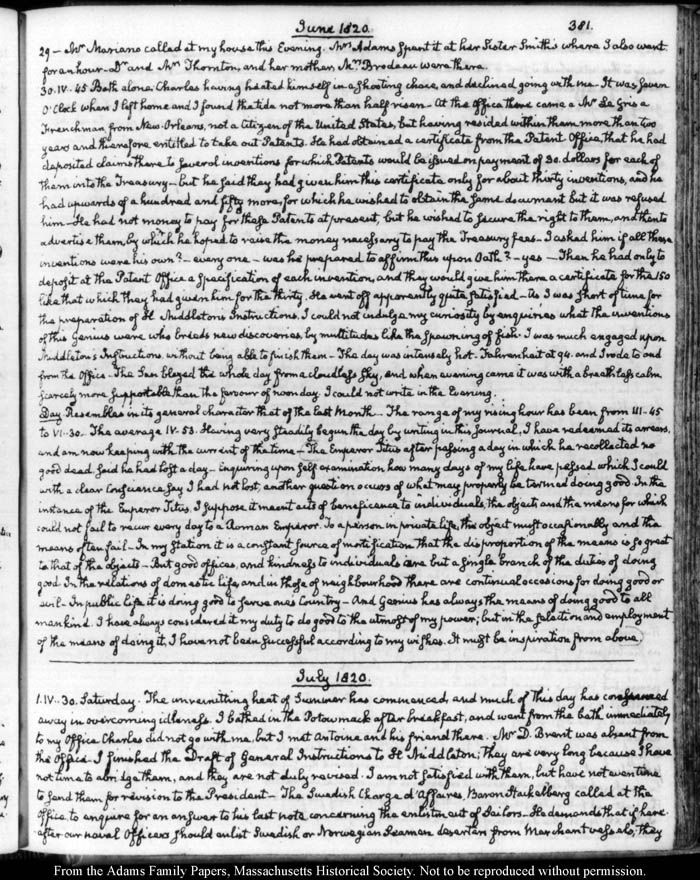 June 1820.
381.
29 — Mr Mariano called at my house this Evening. Mrs Adams spent it at her Sister Smith's where I also went
for an hour — Dr and Mrs Thornton, and her mother Mrs Brodeau were there.
30. IV-45 Bath alone, Charles having heated himself in a shooting chase, and declined going with me. It was Seven
O'Clock when I left home and I found the tide not more than half risen — At the Office there came a Mr Le Gris a
Frenchman, from New-Orleans, not a Citizen of the United States, but having resided within them more than two
years and therefore entitled to take out Patents. He had obtained a certificate from the Patent Office, that he had
deposited claims there to several inventions for which Patents would be issued on payment of 30. dollars for each of
them into the Treasury — but he said they had given him this certificate only for about thirty inventions, and he
had upwards of a hundred and fifty more, for which he wished to obtain the same document but it was refused
him — He had not money to pay for these Patents at present, but he wished to secure the right to them, and then to
advertise them, by which he hoped to raise the money necessary to pay the Treasury fees — I asked him if all these
inventions were his own? — every one — was he prepared to affirm this upon Oath? — yes — Then he had only to
deposit at the Patent Office a Specification of each invention, and they would give him there a certificate for the 150
like that which they had given him for the thirty. He went off apparently quite satisfied — As I was short of time for
the preparation of H. Middleton's Instructions, I could not indulge my curiosity by enquiries what the inventions
of this Genius were who breeds new discoveries, by multitudes like the spawning of fish. I was much engaged upon
Middleton's Instructions, without being able to finish them — The day was intensely hot. Fahrenheit at 94. and I rode to and
from the Office — The Sun blazed the whole day from a cloudless sky, and when evening came it was with a breathless calm
scarcely more supportable than the fervour of noon day. I could not write in the Evening.
Day Resembles in its general character that of the last Month — The range of my rising hour has been from III-45
to VI-30. The average IV-53. Having very steadily begun the day by writing in this Journal, I have redeemed its arrears,
and am now keeping with the current of the time — The Emperor Titus after passing a day in which he recollected no
good deed, said he had lost a day — inquiring upon self examination how many days of my life have passed which I could
with a clear Conscience say I had not lost, another question occurs of what may properly be termed doing good. In the
instance of the Emperor Titus, I suppose it meant acts of beneficence to individuals, the objects and the means for which
could not fail to recur every day to a Roman Emperor. To a person in private life, the object must occasionally and the
means often fail — In my station it is a constant source of mortification that the disproportion of the means is so great
to that of the objects — But good offices, and kindness to individuals are but a single branch of the duties of doing
good. In the relations of domestic life, and in those of neighbourhood there are continual occasions for doing good or
evil — In public life it is doing good to serve ones Country — And Genius has always the means of doing good to all
mankind. I have always considered it my duty to do good to the utmost of my power; but in the selection and employment
of the means of doing it, I have not been successful according to my wishes. It must be inspiration from above.
July 1820.
1. IV-30. Saturday. The unremitting heat of Summer has commenced, and much of this day has consumed
away in overcoming idleness. I bathed in the Potowmack after breakfast, and went from the bath immediately
to my Office. Charles did not go with me, but I met Antoine and his friend there. Mr D. Brent was absent from
the Office. I finished the Draft of General Instructions to H. Middleton; They are very long because I have
not time to abridge them, and they are not duly revised. I am not satisfied with them, but have not even time
to send them for revision to the President — The Swedish Charge d'Affaires, Baron Stackelberg called at the
Office, to enquire for an answer to his last note concerning the enlistment of Sailors — He demands that if here-
after our naval Officers should enlist Swedish or Norwegian Seamen deserters from Merchant vessels, they
From the Adams Family Papers, Massachusetts Historical Society. Not to be reproduced without permission.